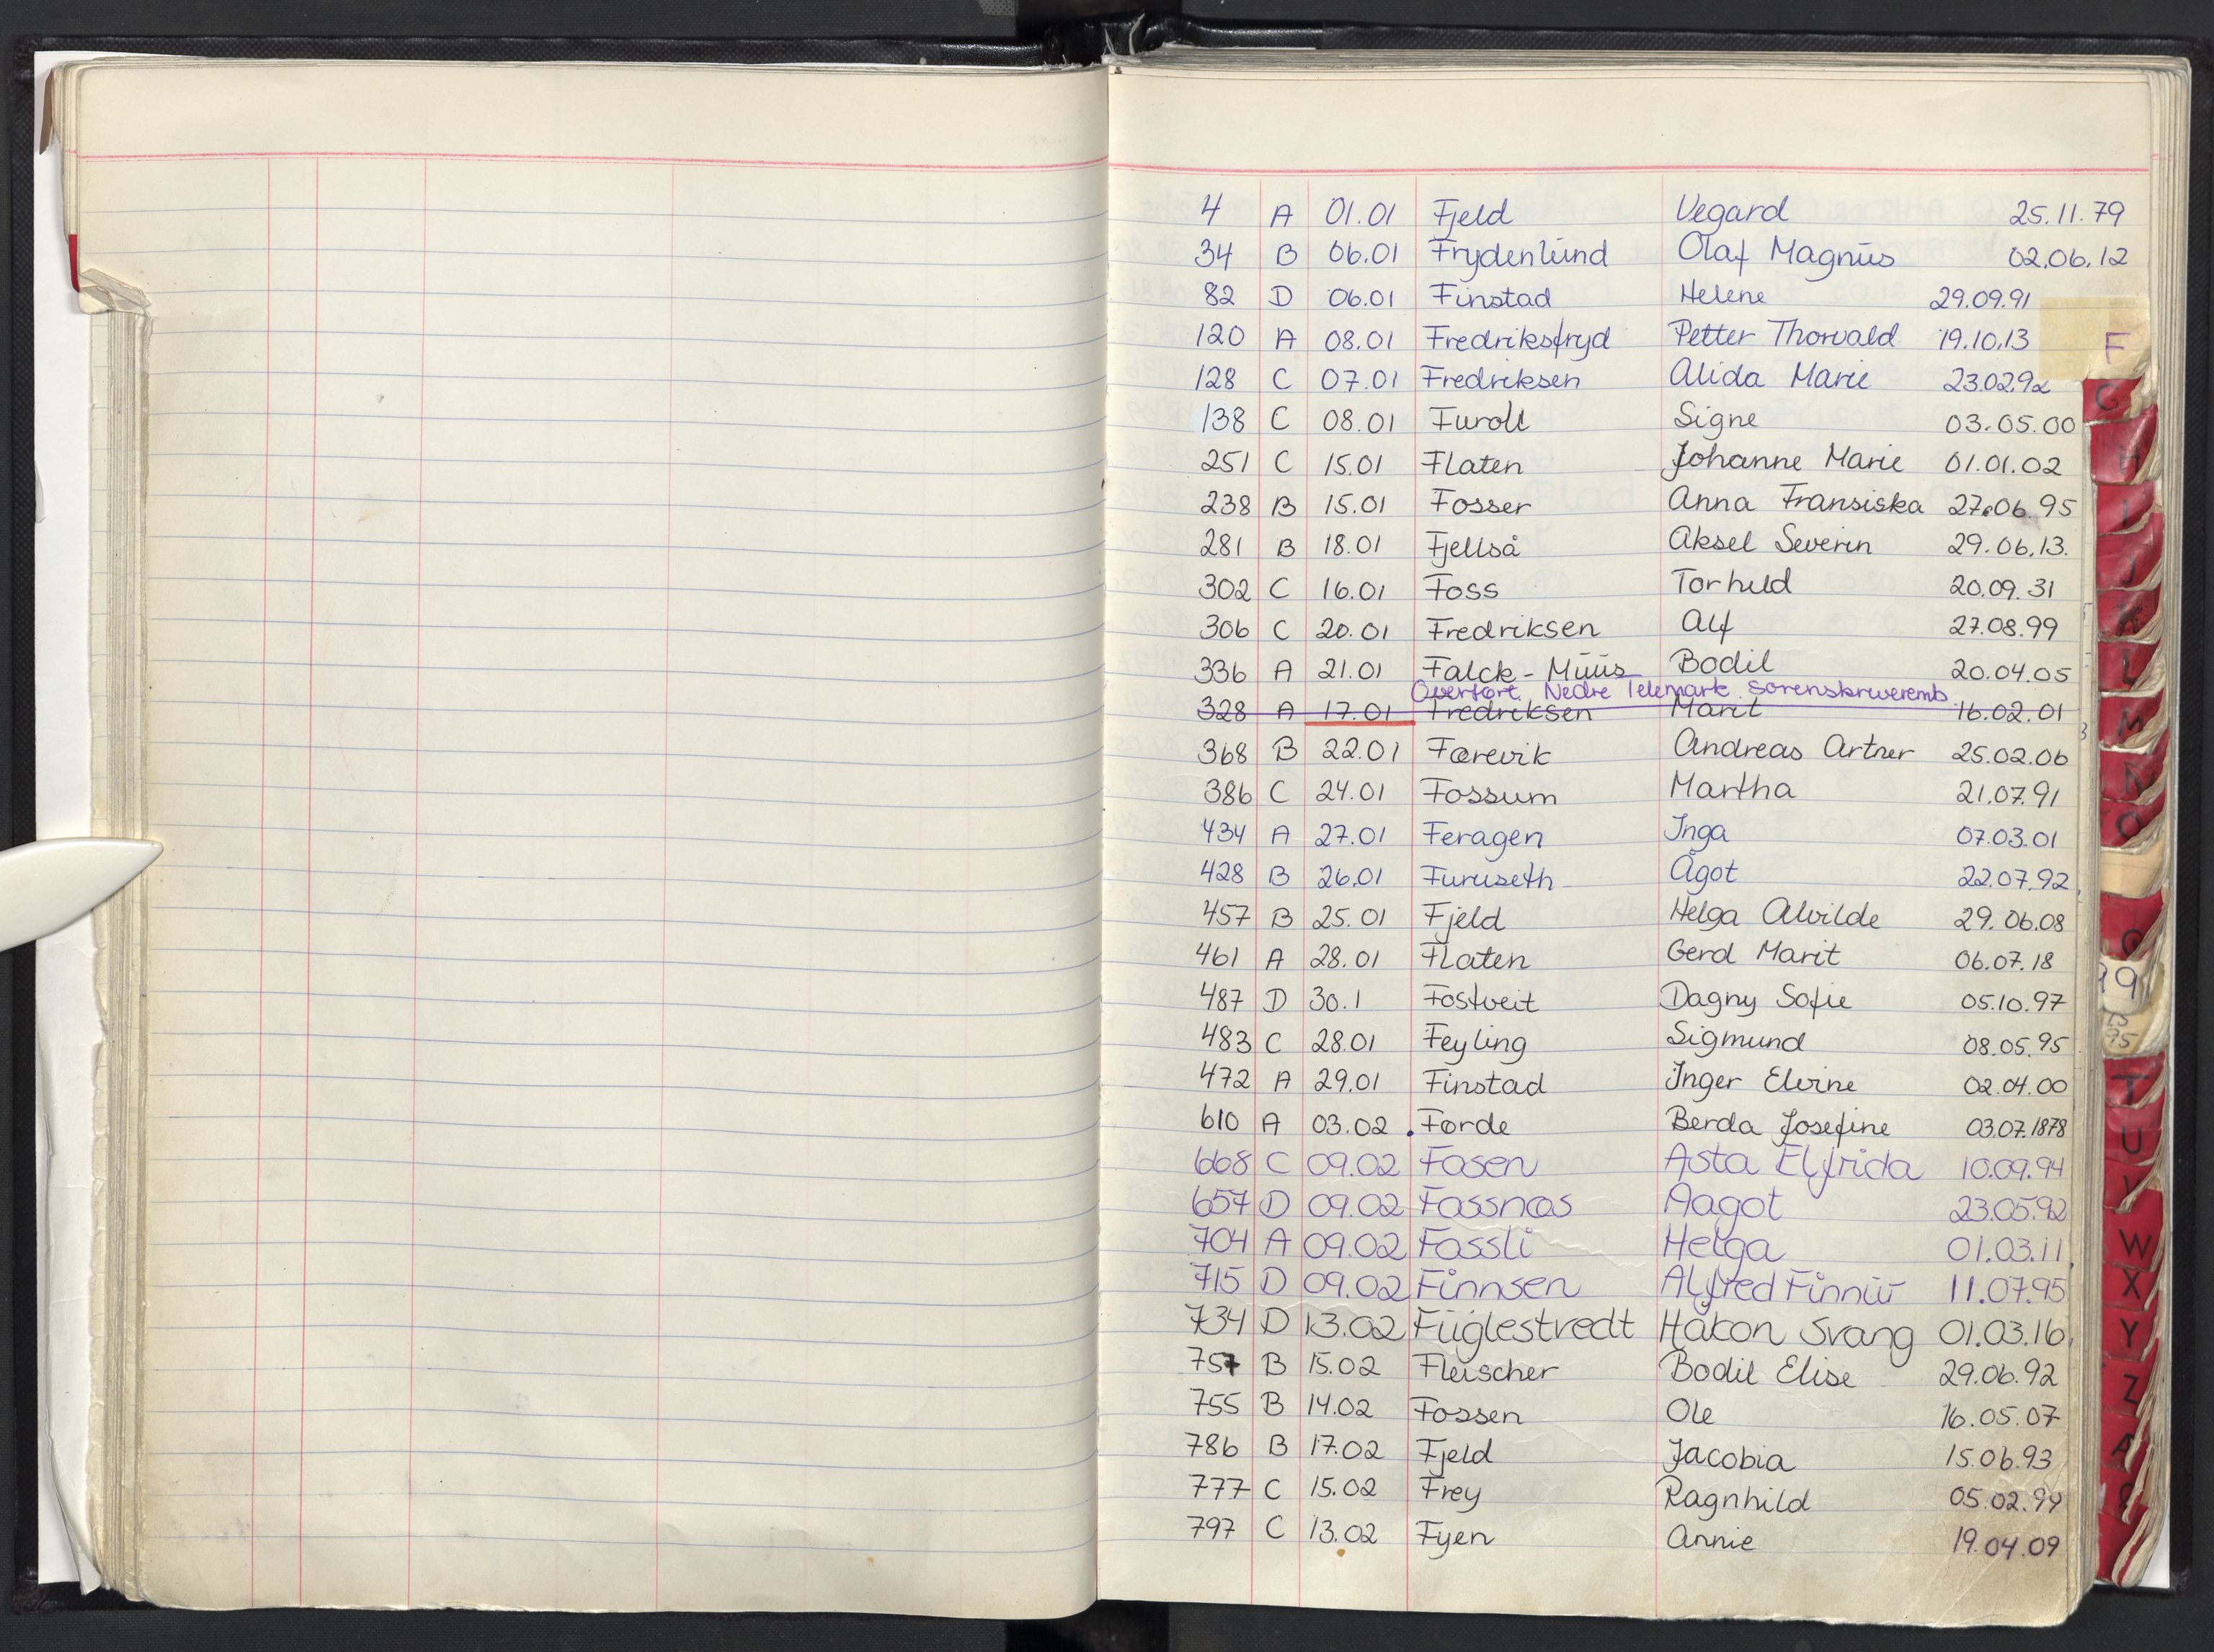 4 A 01.01 Fjeld Vegard 25.11.79
34 B 06.01 Frydenlund Olaf Magnus 02.06.12
82 D 06.01 Finstad Helene 29.09.91
120 A 08.01 Fredriksfryd Petter Thorvald 19.10.13
128 C 07.01 Fredriksen Alida Marie 23.02.92
138 C 08.01 Furoll Signe 03.05.00
251 C 15.01 Flaten Johanne Marie 01.01.02
238 B 15.01 Fosser Anna Fransiska 27.06.95
281 B 18.01 Fjellså Aksel Severin 29.06.13.
302 C 16.01 Foss Torhild 20.09.31
306 C 20.01 Fredriksen Alf 27.08.99
336 A 21.01 Falck-Muus Bodil 20.04.05
Overført Nedre Telemark sorenskriveremb.
328 A 17.01 Fredriksen Marit 16.02.01
368 B 22.01 Færevik Andreas Artner 25.02.06
386 C 24.01 Fossum Martha 21.07.91
434 A 27.01 Feragen Inga 07.03.01
428 B 26.01 Furuseth Ågot 22.07.92
457 B 25.01 Fjeld Helga Alvilde 29.06.08
461 A 28.01 Flaten Gerd Marit 06.07.18
487 D 30.1 Fostveit Dagny Sofie 05.10.97
483 C 28.01 Feyling Sigmund 08.05.95
472 A 29.01 Finstad Inger Elvine 02.04.00
610 A 03.02 Førde Berda Josefine 03.07.1878
668 C 09.02 Fosen Asta Elfrida 10.09.94
657 D 09.02 Fossnæs Aagot 23.05.92
704 A 09.02 Fossli Helga 01.03.11
715 D 09.02 Finnsen Alfred Finnur 11.07.95
734 D 13.02 Fuglestvedt Håkon Svang 01.03.16
757 B 15.02 Fleischer Bodil Elise 29.06.92
755 B 14.02 Fossen Ole 16.05.07
786 B 17.02 Fjeld Jacobia 15.06.93
777 C 15.02 Frey Ragnhild 05.02.99
797 C 13.02 Fyen Annie 19.04.09
F
G
H
I
J
K
L
M
N
O
T
U
V
W
X
Y
Z